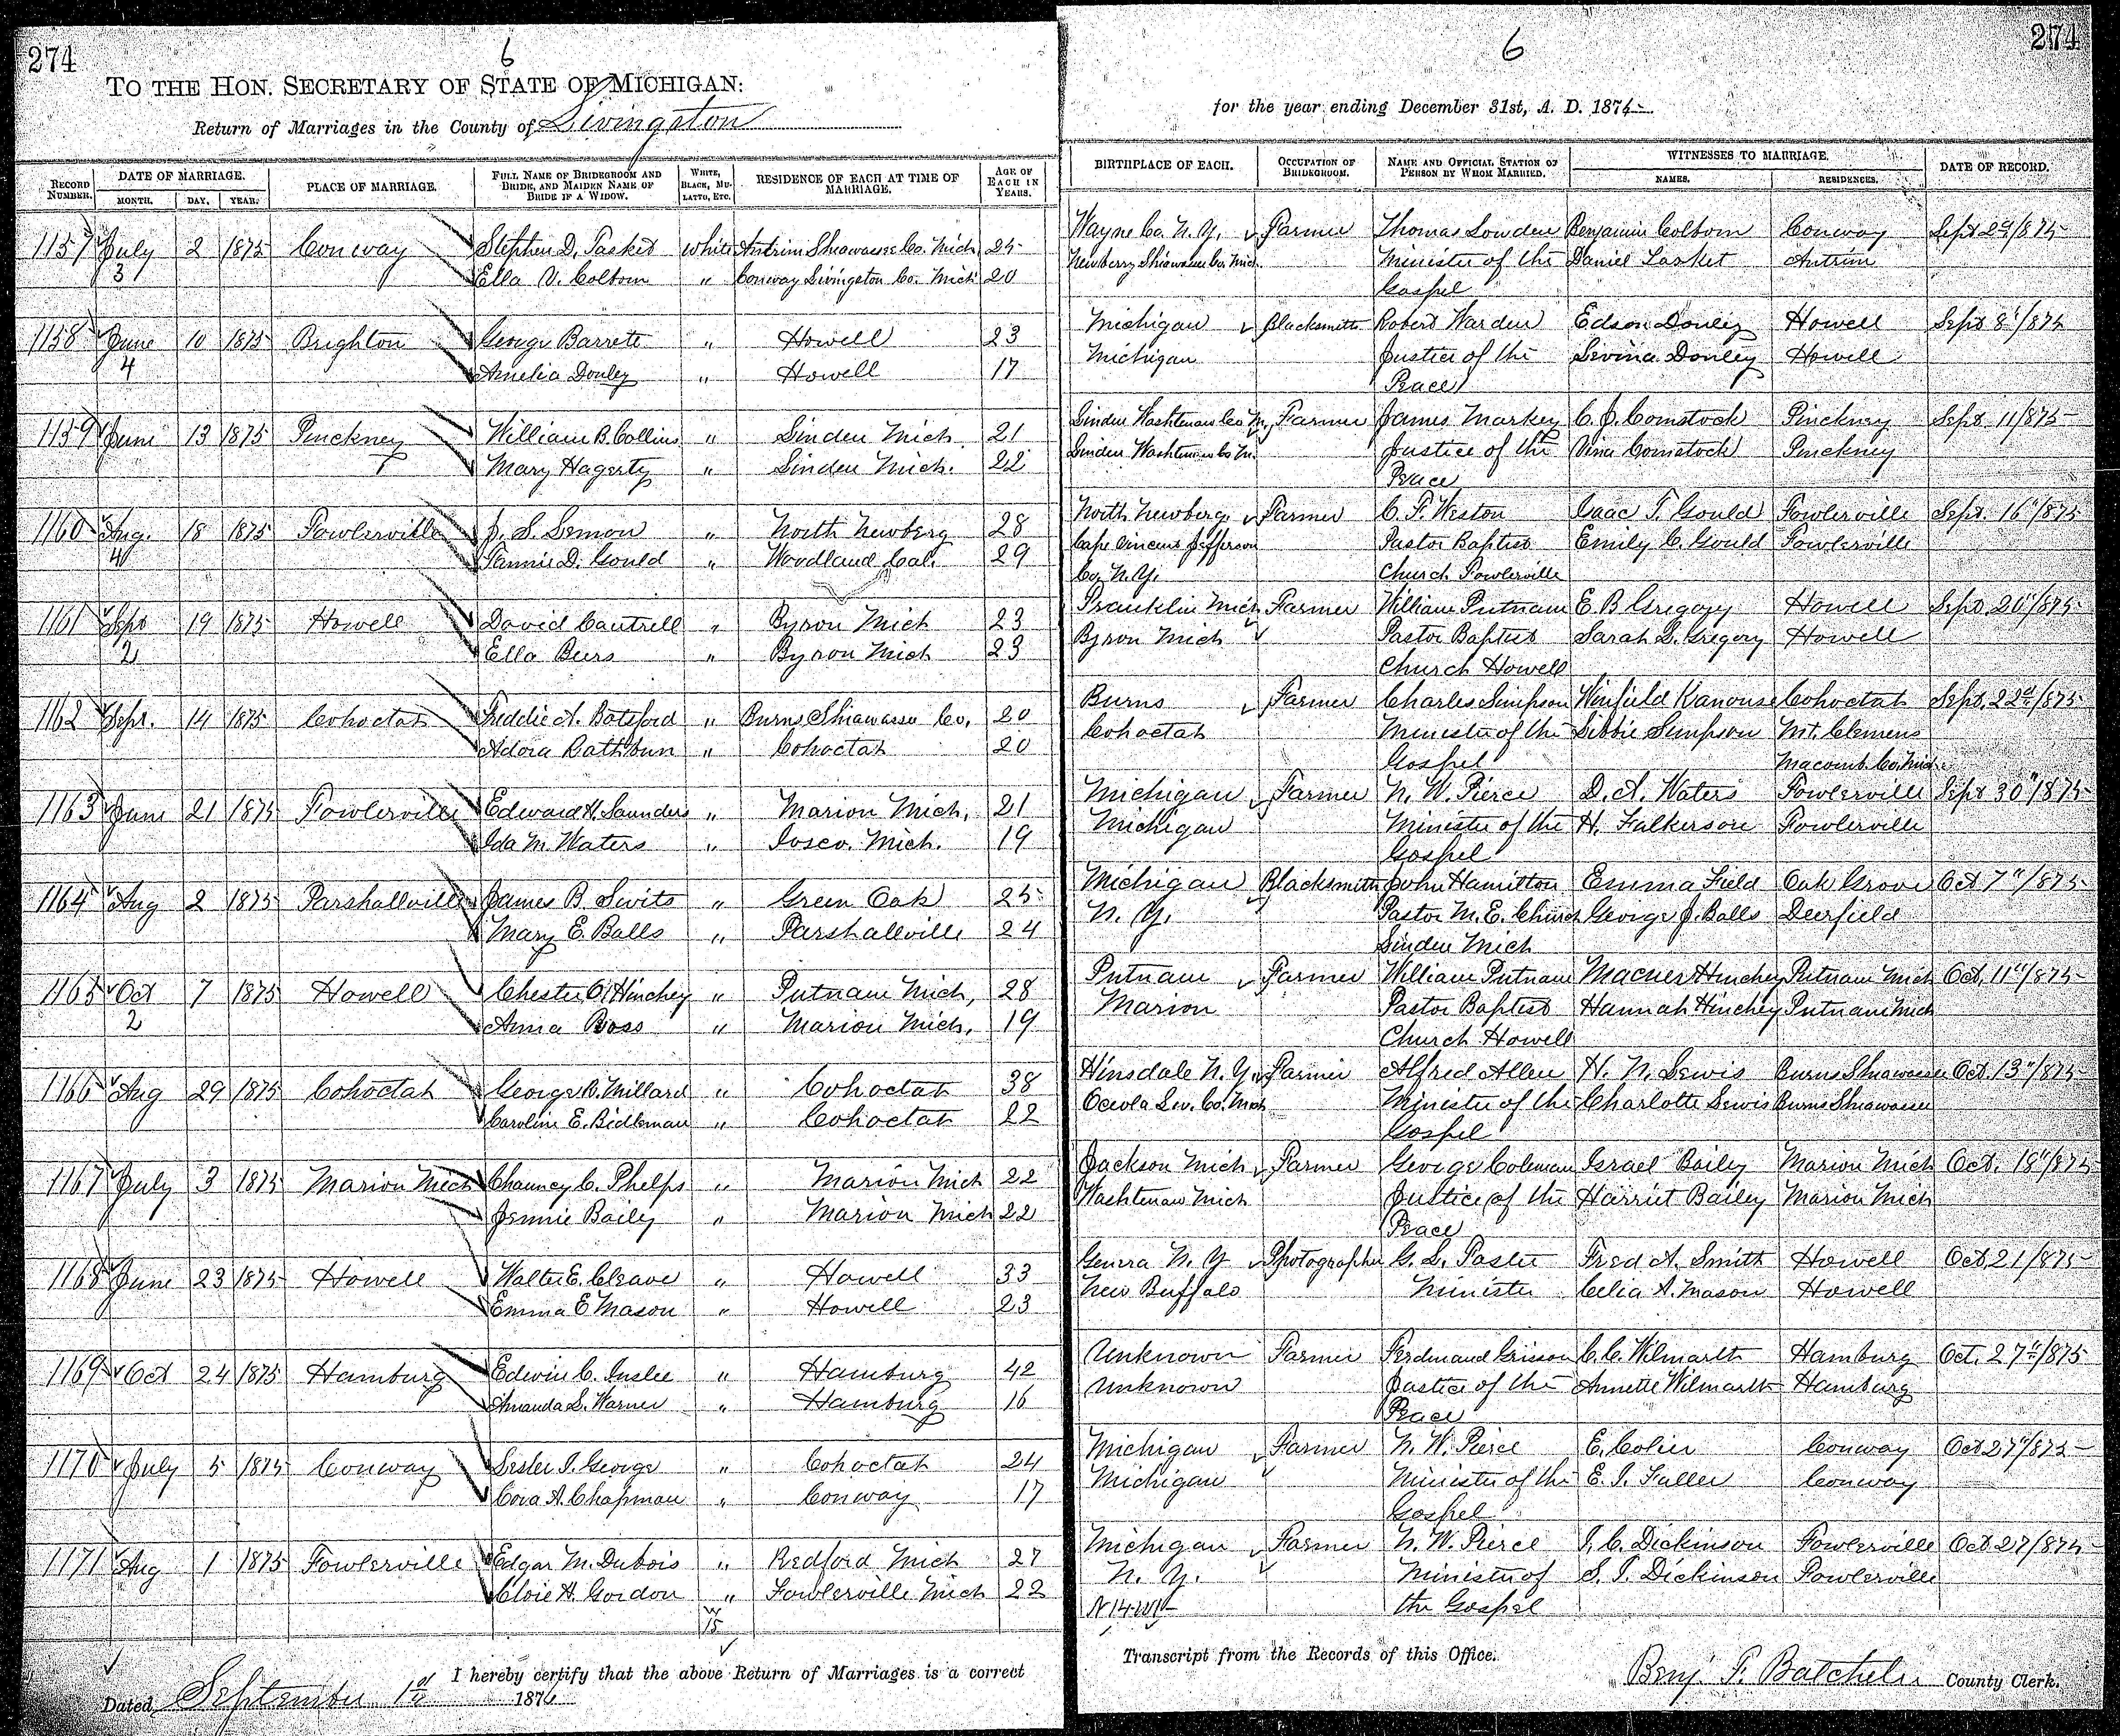 274
6
TO THE HON. SECRETARY OF STATE OF MICHIGAN:
Return of Marriages in the County of Livingston
RECORD NUMBER. DATE OF MARRIAGE. MONTH. DAY. YEAR. PLACE OF MARRIAGE. FULL NAME OF BRIDEGROOM AND BRIDE, AND MAIDEN NAME OF BRIDE IF A WIDOW. WHITE, BLACK, MULATTO, ETC. RESIDENCE OF EACH AT TIME OF MARRIAGE. AGE OF EACH IN YEARS.
1157 July 2 1875 Conway Stephen D. Tasket White Antrim Shiawassee Co. Mich 25
3 Ella V. Colborn " Conway Livingston Co. Mich 20
1158 June 10 1875 Brighton George Barrett " Howell 23
4 Amelia Donley " Howell 17
1159 June 13 1875 Pinckney William B. Collins " Linden Mich 21
Mary Hagerty " Linden Mich. 22
1160 Aug. 18 1875 Fowlerville J. S. Lemon " North Newberg 28
4 Fannie D. Gould " Woodland Cal. 29
1161 Sept 19 1875 Howell David Cantrell " Byron Mich 23
2 Ella Beers " Byron Mich 23
1162 Sept. 14 1875 Cohoctah Freddie A. Botsford " Burns Shiawassee Co. 20
Adora Rathbun " Cohoctah 20
1163 June 21 1875 Fowlerville Edward H. Saunders " Marion Mich, 21
Ida M. Waters " Iosco. Mich. 19
1164 Aug 2 1875 Parshallville James B. Swits " Green Oak 25
Mary E. Balls " Parshallville 24
1165 Oct 7 1875 Howell Chester O. Hinchey " Putnam Mich, 28
2 Anna Ross " Marion Mich, 19
1166 Aug 29 1875 Cohoctah George R. Millard " Cohoctah 38
Caroline E. Bidleman " Cohoctah 22
1167 July 3 1875 Marion Mich Chauncy C. Phelps " Marion Mich 22
Jennie Baily " Marion Mich 22
1168 June 23 1875 Howell Walter E. Cleave " Howell 33
Emma E Mason " Howell 23
1169 Oct 24 1875 Hamburg Edwin C. Inslee " Hamburg 42
Amanda L. Warner " Hamburg 16
1170 July 5 1875 Conway Lester I. George " Cohoctah 24
Cora A. Chapman " Conway 17
1171 Aug 1 1875 Fowlerville Edgar M. Dubois " Redford Mich 27
Cloie H. Gordon " Fowlerville Mich 22
W
15
I hereby certify that the above Return of Marriages is a correct
Dated, September 1st 1876
274
6
for the year ending December 31st, A. D. 1875
BIRTHPLACE OF EACH. OCCUPATION OF BRIDEGROOM. NAME AND OFFICIAL STATION OF PERSON BY WHOM MARRIED. WITNESSES TO MARRIAGE. NAMES. RESIDENCES. DATE OF RECORD.
Wayne Co. N. Y. Farmer Thomas Lowden Benjamin Colborn Conway Sept 29/875
Newberry Shiawassee Co. Mich. Minister of the Daniel Tasket Antrim
Gospel
Michigan Blacksmith Robert Warden Edson Donley Howell Sept 8"/875
Michigan Justice of the Levina Donley Howell
Peace
Linden Washtenaw Co M, Farmer James Markey C. J. Comstock Pinckney Sept 11/875
Linden Washtenaw Co M. Justice of the Vina Comstock Pinckney
Peace
North Newberg. Farmer C. F. Weston Isaac T. Gould Fowlerville Sept. 16"/875
Cape Vincent Jefferson Pastor Baptist Emily C. Gould Fowlerville
Co. N. Y. Church Fowlerville
Franklin Mich Farmer William Putnam E. B Gregory Howell Sept. 20"/875
Byron Mich Pastor Baptist Sarah L. Gregory Howell
Church Howell
Burns Farmer Charles Simpson Winfield Kanouse Cohoctah Sept. 22d/875
Cohoctah Minister of the Libbie Simpson Mt. Clemens
Gospel Macomb. Co. Mich
Michigan Farmer N. W. Pierce D. A. Waters Fowlerville Sept 30"/875
Michigan Minister of the H. Fulkerson Fowlerville
Gospel
Michigan Blacksmith John Hamilton Emma Field Oak Grove Oct 7"/875
N. Y. Pastor M. E. Church George J. Balls Deerfield
Linden Mich
Putnam Farmer William Putnam Hinchey Putnam Mich Oct. 11"/875
Marion Pastor Baptist Hannah Hinchey Putnam Mich
Church Howell
Hinsdale N. Y. Farmer Alfred Allen H. N. Lewis Burns Shiawassee Oct. 13"/875
Oceola Liv. Co. Mich Minister of the Charlotte Lewis Burns Shiawassee
Gospel
Jackson Mich Farmer George Coleman Israel Bailey Marion Mich Oct. 18"/875
Washtenaw Mich Justice of the Harriet Bailey Marion Mich
Peace
Geneva N. Y Photographer G. L. Foster Fred A. Smith Howell Oct 21/875
New Buffalo Minister Celia A. Mason Howell
Unknown Farmer Ferdinand Grisson C. C. Wilmarth Hamburg Oct. 27"/875
Unknown Justice of the Annette Wilmarth Hamburg
Peace
Michigan Farmer N. W. Pierce E. Colier Conway Oct 27"/875
Michigan Minister of the E. I. Fuller Conway
Gospel
Michigan Farmer N. W. Pierce I. C. Dickinson Fowlerville Oct 27/875
N. Y. Minister of S. I. Dickinson Fowlerville
the Gospel
Transcript from the Records of this Office.
Benj. F. Batcheler County Clerk.